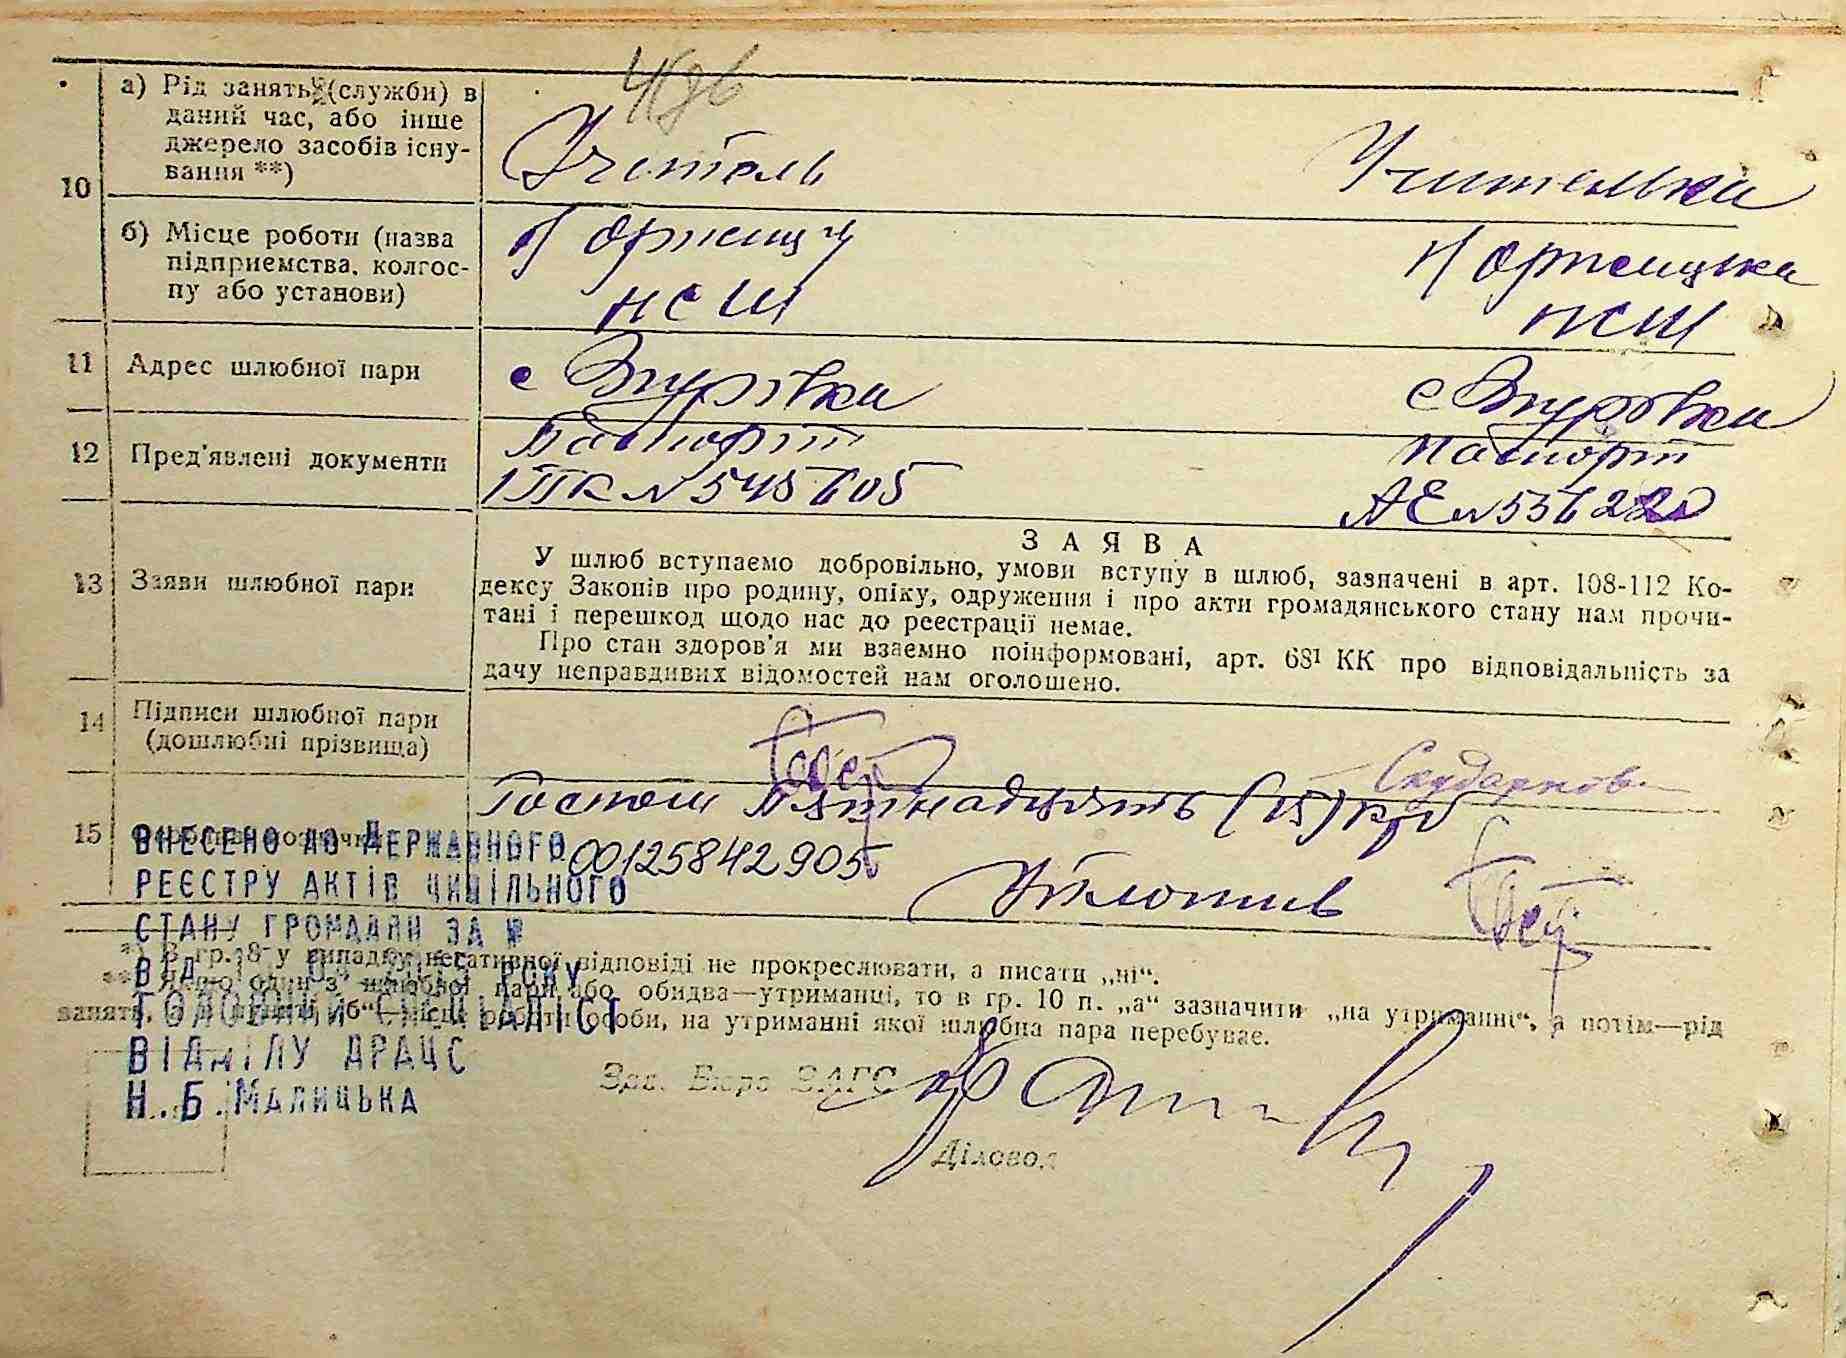 10
а) Рід занять (служби) в
даний час, або інше
джерело засобів існу-
вання **)
Учитель
Учителька
б) Місце роботи (назва
підприємства, колгос-
пу або установи)
НСШ
НСШ
11 Адрес шлюбної пари
с Згурівка
с Згурівка
12 Пред'явлені документи
Паспорт
№ 545605
Паспорт
АЕ №
13 Заяви шлюбної пари
ЗАЯВА
У шлюб вступаємо добровільно, умови вступу в шлюб, зазначені в арт. 108-112 Ко-
дексу Законів про родину, опіку, одруження і про акти громадянського стану нам прочи-
тані і перешкод щодо нас до реєстрації немає.
Про стан здоров'я ми взаємно поінформовані, арт. 68¹ КК про відповідальність за
дачу неправдивих відомостей нам оголошено.
14 Підписи шлюбної пари
(дошлюбні прізвища)
15
(15) крб
ВНЕСЕНО ДО ДЕРЖАВНОГО
00125842905
РЕЄСТРУ АКТІВ ЦИВІЛЬНОГО
СТАНУ ГРОМАДЯН ЗА №
*) В гр. 8 у випадку негативної відповіді не прокреслювати, а писати „ні“.
ВІД РОКУ
**) Якщо один з шлюбної пари або обидва—утриманці, то в гр. 10 п. „а“ зазначити „на утриманні“, а потім—рід
ГОЛОВНИЙ СПЕЦІАЛІСТ
особи, на утриманні якої шлюбна пара перебуває.
ВІДДІЛУ ДРАЦС
Зав. Бюро ЗАГС
Н.Б.МАЛИЦЬКА
Діловод